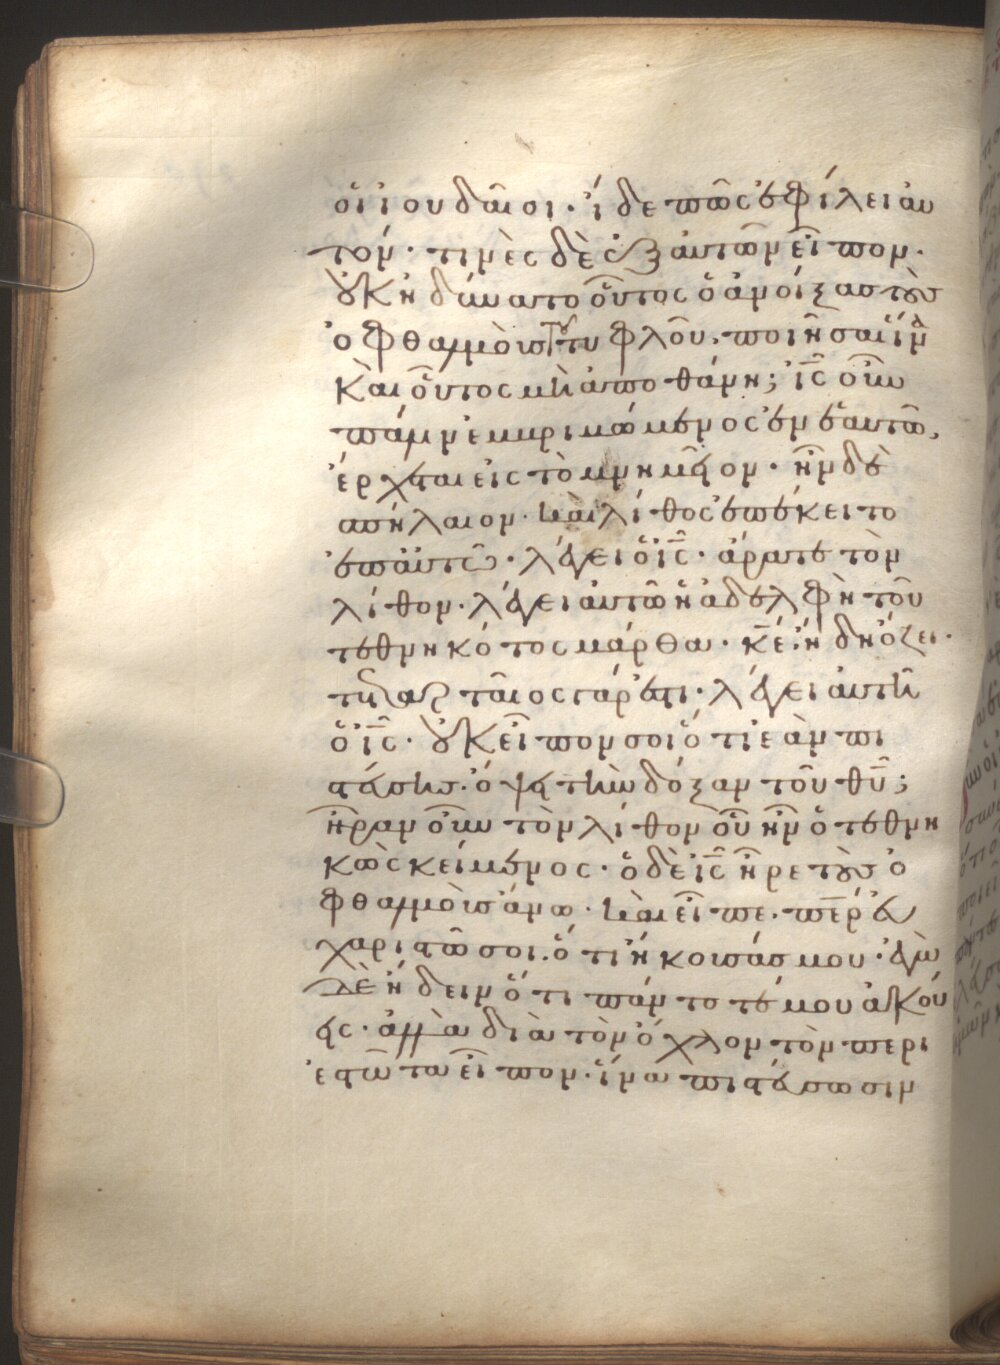 οἱ ἰουδαῖοι· ἴδε πῶς ἐφίλει αὐ
τόν· τινὲς δὲ ἐξ αὐτῶν εἶπον·
οὐκ ἠδύνατο οὗτος ὁ ἀνοίξας τοὺς
ὀφθαλμοὺς τοῦ τυφλοῦ, ποιῆσαι ἵνα
καὶ οὗτος μὴ ἀποθάνη; ἰς̅ οὖν
πάλιν ἐμβριμώμενος ἐν ἑαυτῶ,
ἔρχεται εἰς τὸ μνημεῖον· ἦν δὲ
σπήλαιον· καὶ λίθος ἐπέκειτο
ἐπ αὐτῶ· λέγει ὁ ἰς̅· ἄρατε τὸν
λίθον· λέγει αὐτῶ ἡ ἀδελφὴ τοῦ
τεθνηκότος μάρθα· κε̅· ἤδη ὄζει·
τεταρταῖος γάρ ἐστι· λέγει αὐτῆ
ὁ ἰς̅· οὐκ εἶπον σοι ὅτι ἐὰν πι
στεύσης· ὄψει τὴν δόξαν τοῦ θυ̅;
ἦραν οὖν τὸν λίθον οὗ ἦν ὁ τεθνη
κὼς κείμενος· ὁ δὲ ἰς̅ ἦρε τοὺς ὀ
φθαλμοὺς ἄνω· καὶ εἶπε· περ̅ εὐ
χαριστῶ σοι· ὅτι ἤκουσάς μου· ἐγὼ
δὲ ἤδειν ὅτι πάντοτέ μου ἀκού
εις· ἀλλὰ διὰ τὸν ὄχλον τὸν περι
εστῶτα εἶπον· ἵνα πιστεύσωσιν